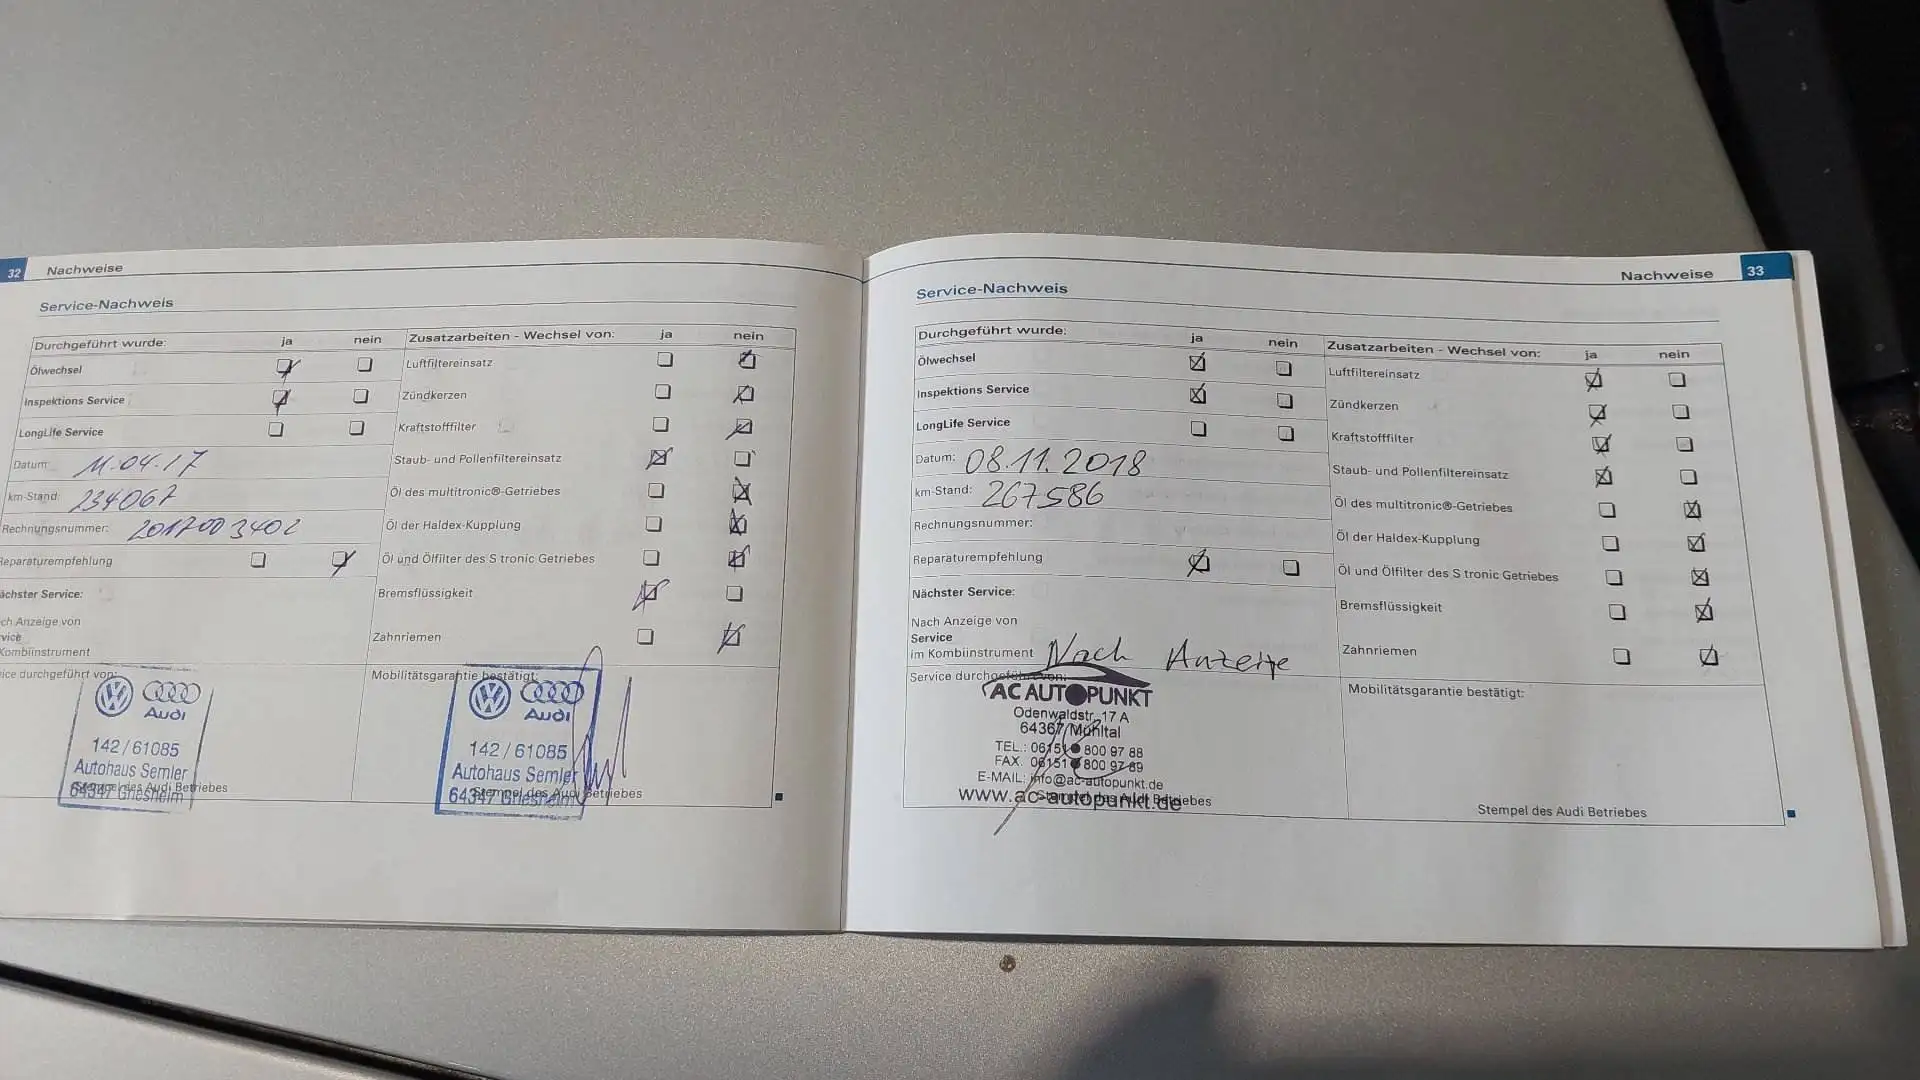 32 Nachweise
Service-Nachweis
Durchgeführt wurde: ja nein
Ölwechsel
Inspektions Service
LongLife Service
Datum: 11.04.17
km-Stand: 234067
Rechnungsnummer: 2017003402
Reparaturempfehlung
ächster Service:
ch Anzeige von
vice
Kombiinstrument
ice durchgeführt von:
Audi
142/61085
Autohaus Semler
64347 Griesheim
Stempel des Audi Betriebes
Zusatzarbeiten - Wechsel von: ja nein
Luftfiltereinsatz
Zündkerzen
Kraftstofffilter
Staub- und Pollenfiltereinsatz
Öl des multitronic®-Getriebes
Öl der Haldex-Kupplung
Öl und Ölfilter des S tronic Getriebes
Bremsflüssigkeit
Zahnriemen
Mobilitätsgarantie bestätigt:
Audi
142/61085
Autohaus Semler
64347 Griesheim
Stempel des Audi Betriebes
Nachweise 33
Service-Nachweis
Durchgeführt wurde: ja nein
Ölwechsel
Inspektions Service
LongLife Service
Datum: 08.11.2018
km-Stand: 267586
Rechnungsnummer:
Reparaturempfehlung
Nächster Service:
Nach Anzeige von
Service
im Kombiinstrument Nach Anzeige
Service durchgeführt von:
AC AUTOPUNKT
Odenwaldstr. 17 A
64367 Mühltal
TEL.: 06151 800 97 88
FAX. 06151 800 97 89
E-MAIL: info@ac-autopunkt.de
www.ac-autopunkt.de
Stempel des Audi Betriebes
Zusatzarbeiten - Wechsel von: ja nein
Luftfiltereinsatz
Zündkerzen
Kraftstofffilter
Staub- und Pollenfiltereinsatz
Öl des multitronic®-Getriebes
Öl der Haldex-Kupplung
Öl und Ölfilter des S tronic Getriebes
Bremsflüssigkeit
Zahnriemen
Mobilitätsgarantie bestätigt:
Stempel des Audi Betriebes